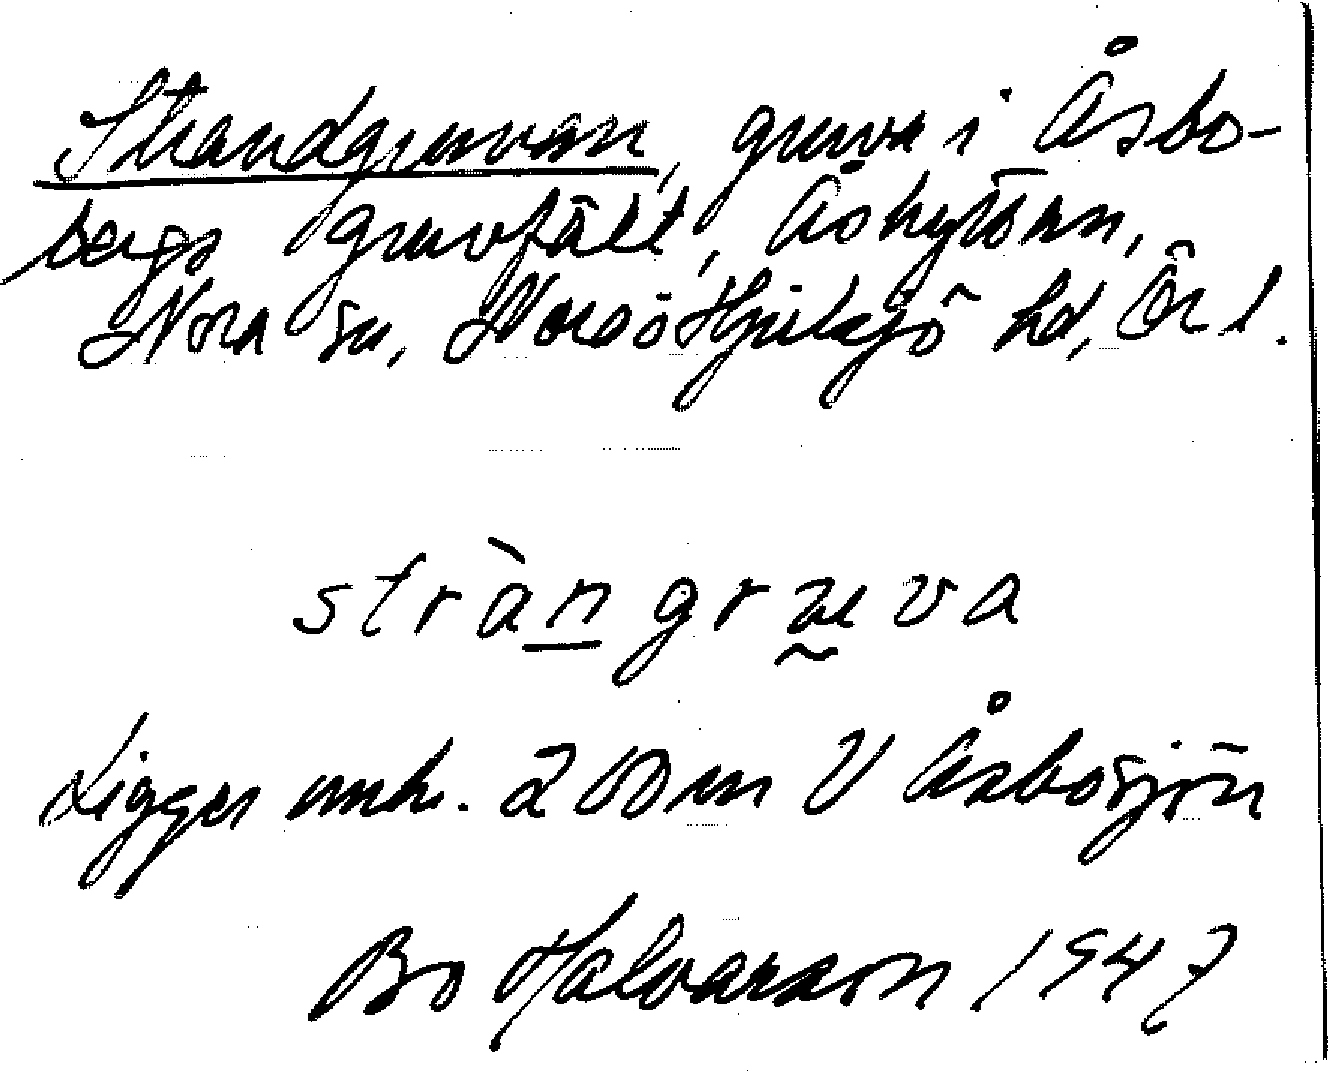 Strandgruvan, gruva i Åsbo-
bergs gruvfält, Åshyttan,
Nora sn, Nora o Hjulsjö hd, Ör l.
stràngrꭒva
Ligger omkr. 200 m V Åsbosjön
Bo Halvarson 1947